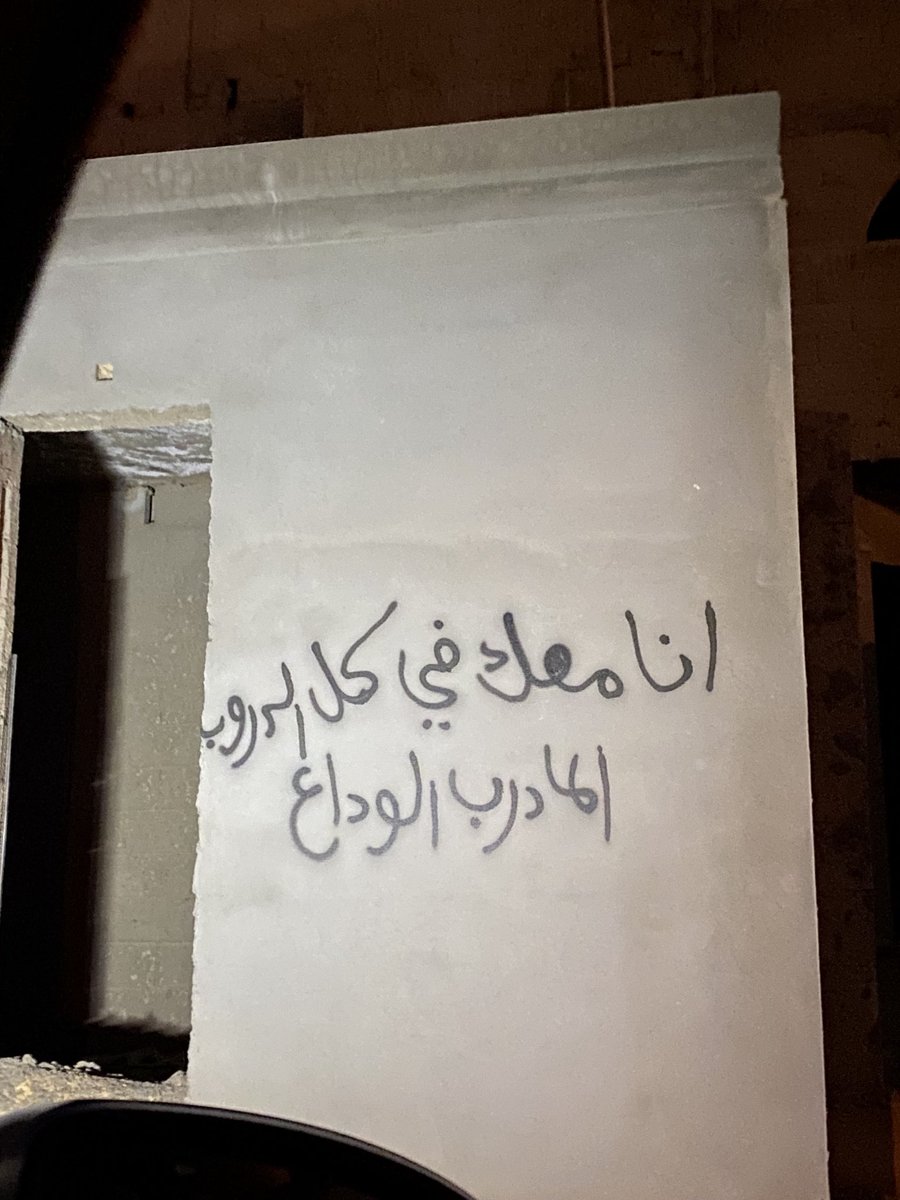 انا معك في كل الدروب
الا درب الوداع